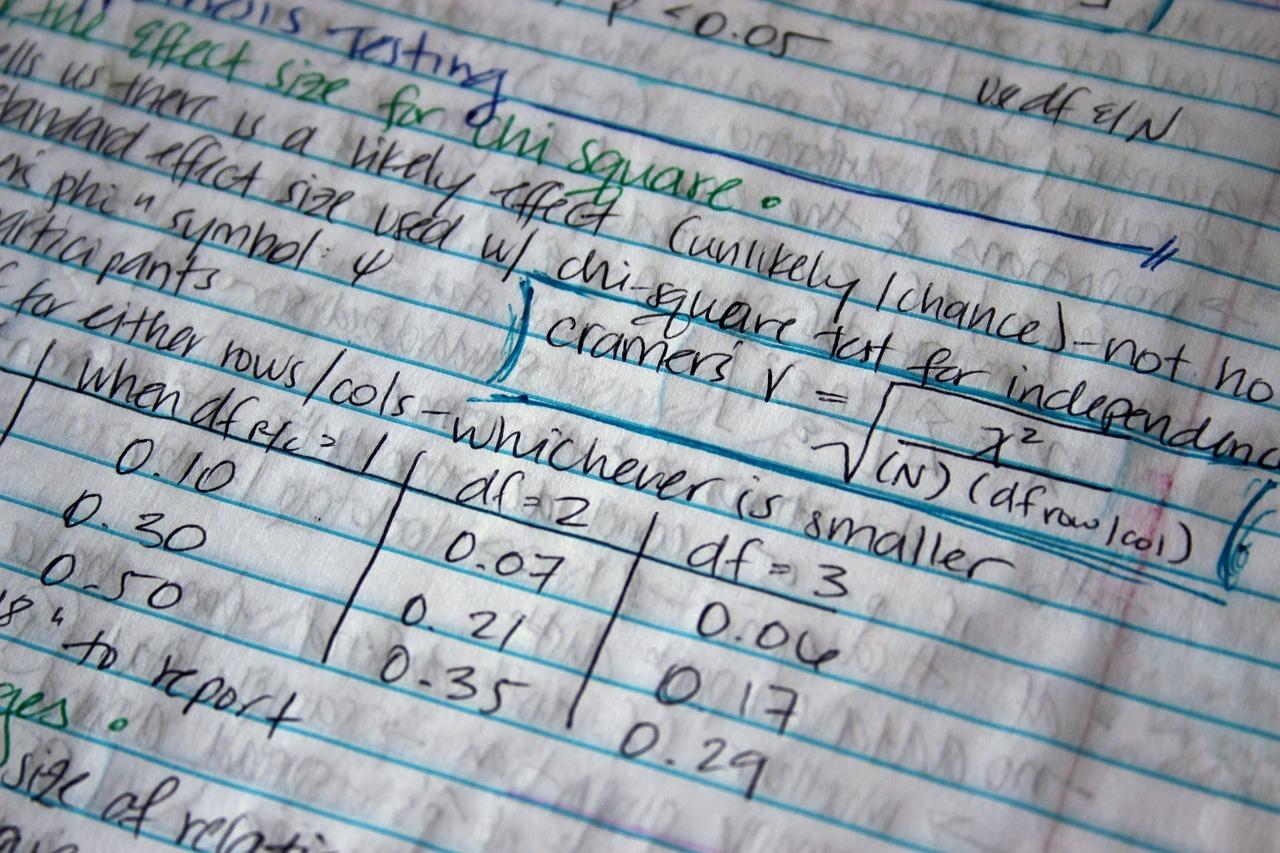 p < 0.05
Testing
use df & N
the effect size for chi square.
us there is a likely effect (unlikely/chance)-not
effect size used w/ chi-square test for
phi" symbol: φ
cramers V = √ x² / (N) (df row/col)
for either rows/cols-whichever is smaller
when df R/C = 1 df = 2 df = 3
0.10 0.07 0.06
0.30 0.21 0.17
0.50 0.35 0.29
" to report
size of